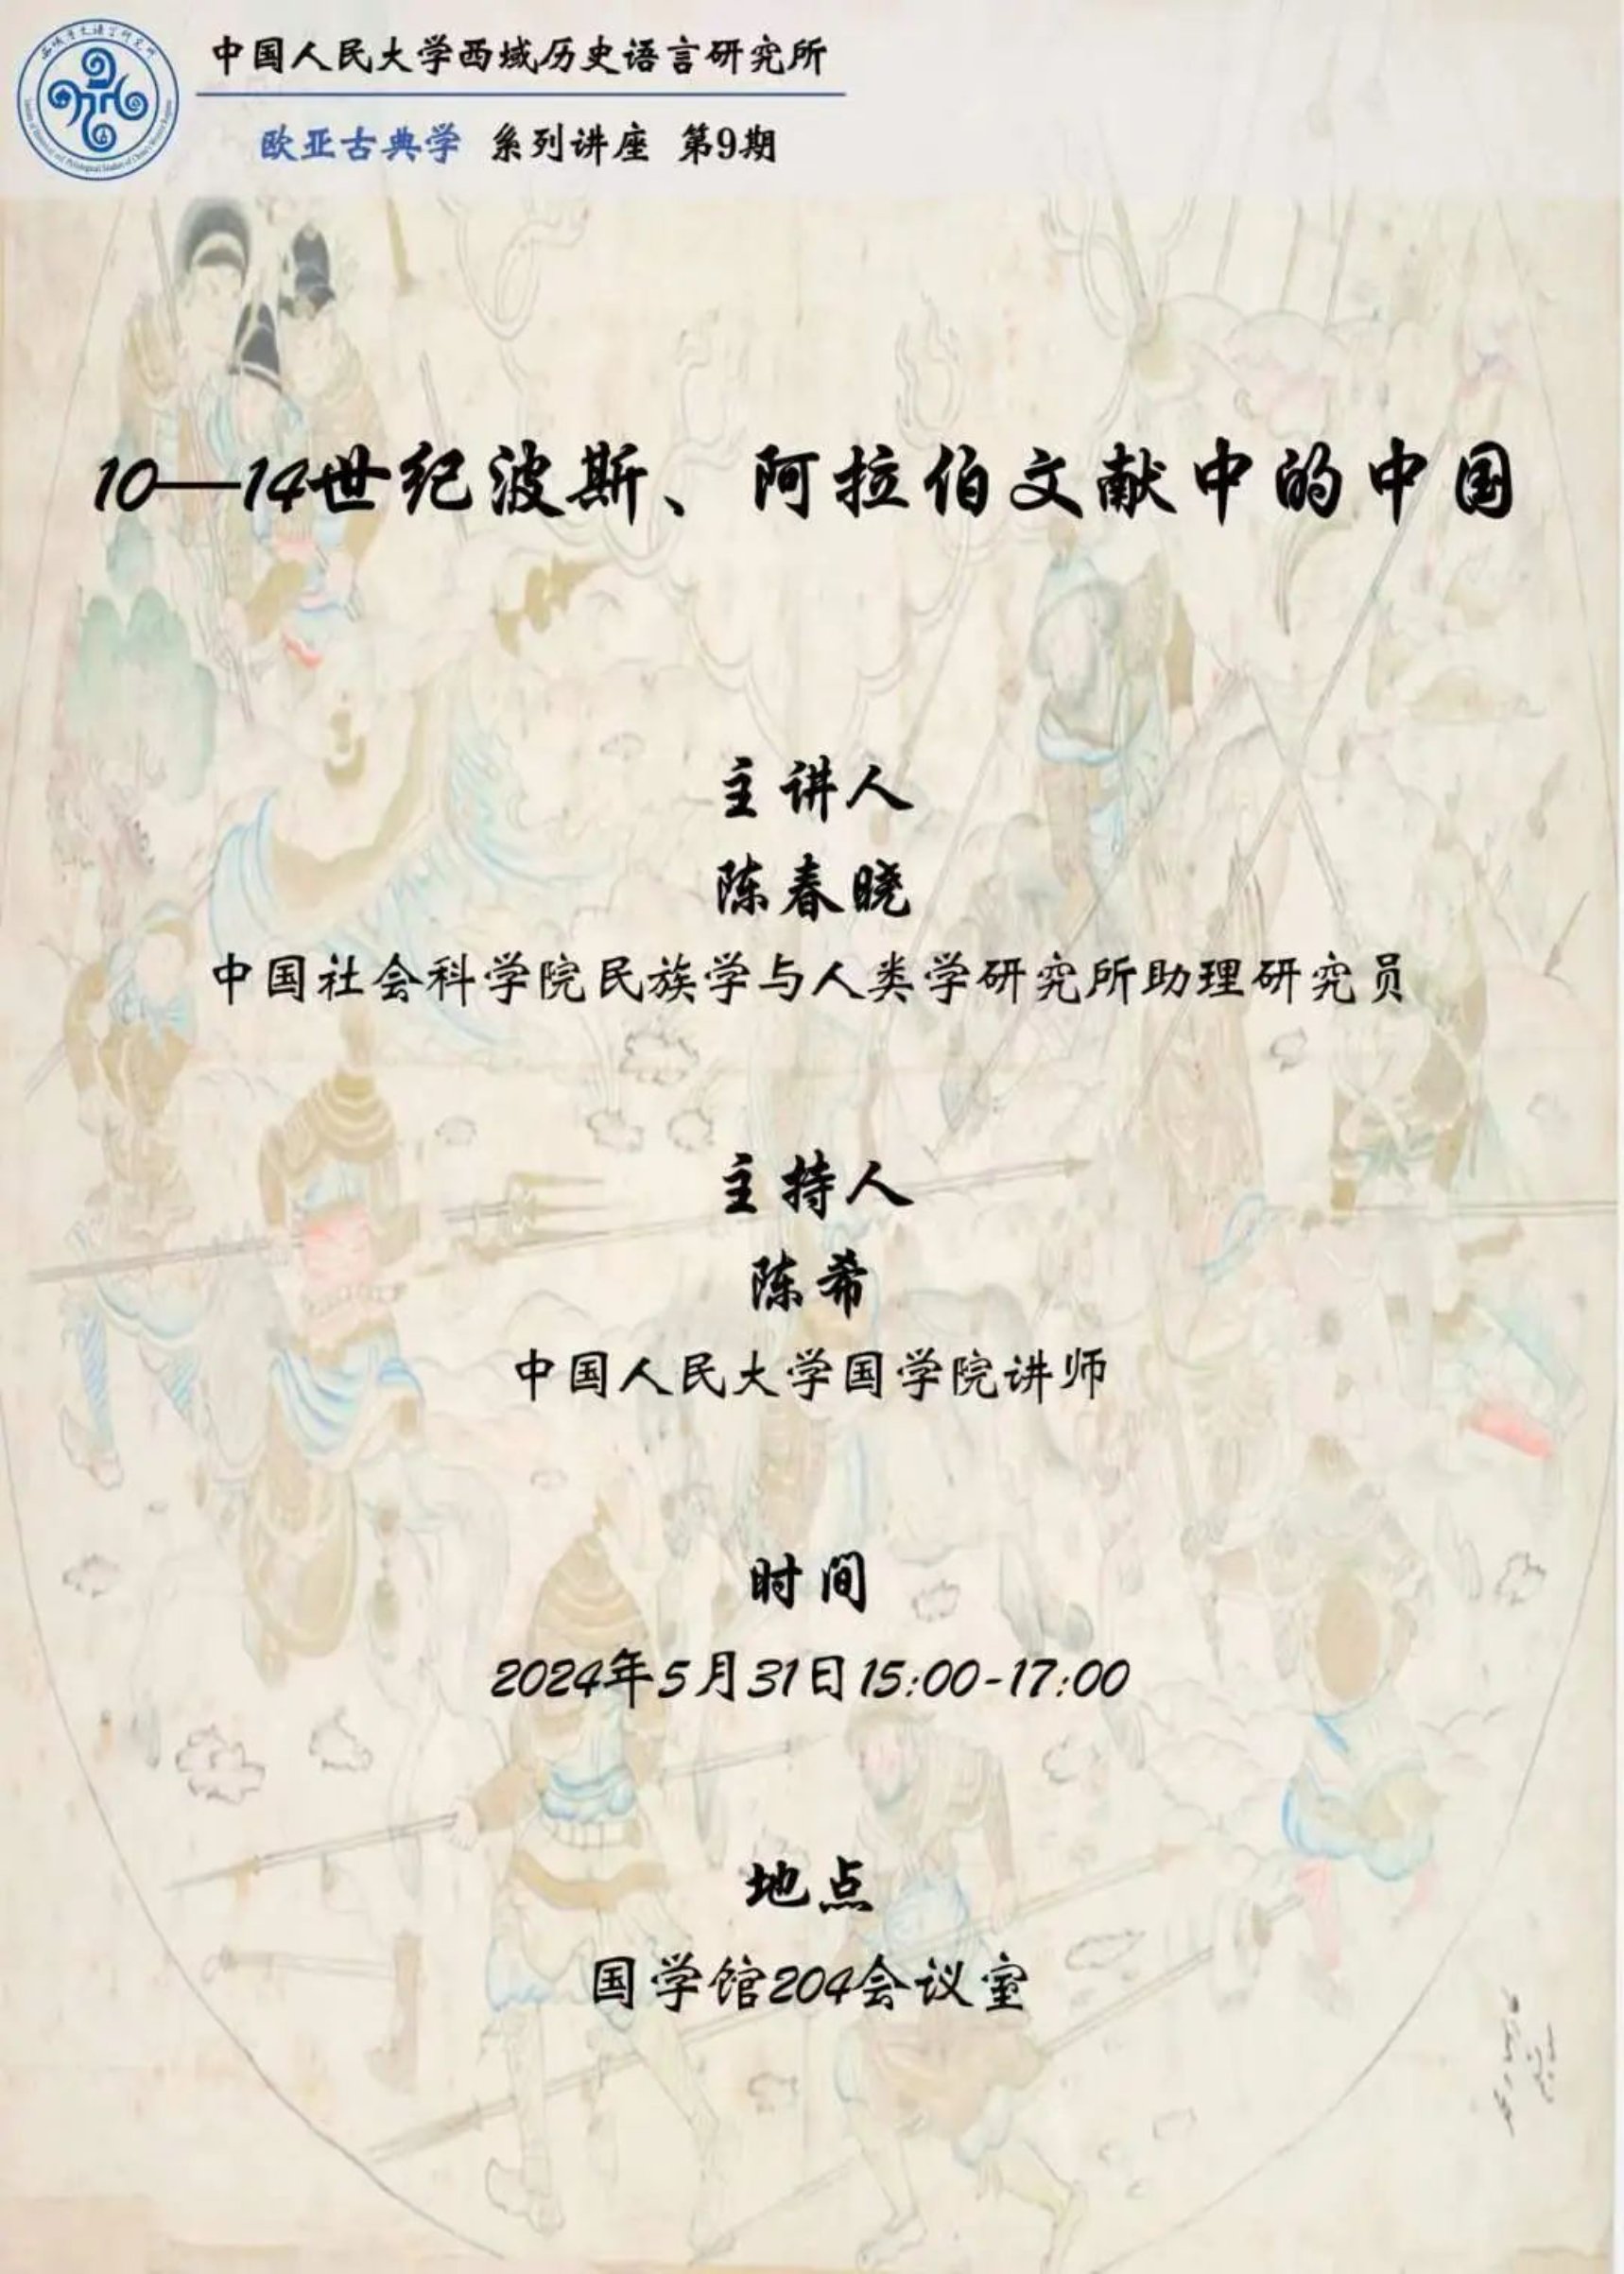 中国人民大学西域历史语言研究所
欧亚古典学 系列讲座 第9期
10—14世纪波斯、阿拉伯文献中的中国
主讲人
陈春晓
中国社会科学院民族学与人类学研究所助理研究员
主持人
陈希
中国人民大学国学院讲师
时间
2024年5月31日15:00-17:00
地点
国学馆204会议室